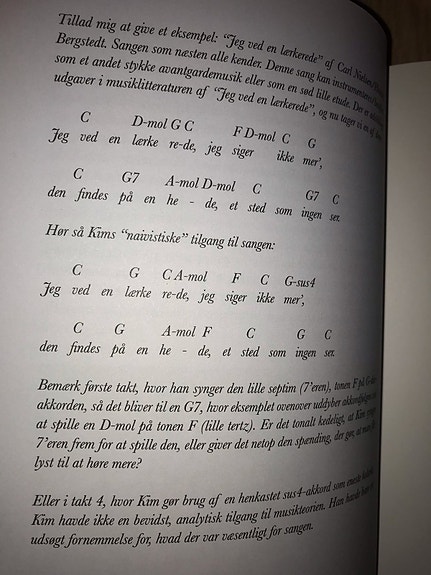 Tillad mig at give et eksempel: "Jeg ved en lærkerede" af Carl Nielsen/
Bergstedt. Sangen som næsten alle kender. Denne sang kan instrumenteres
som et andet stykke avantgardemusik eller som en sød lille etude. Der er
udgaver i musiklitteraturen af "Jeg ved en lærkerede", og nu tager vi en af
C D-mol G C F D-mol C G
Jeg ved en lærke re-de, jeg siger ikke mer',
C G7 A-mol D-mol C G7 C
den findes på en he - de, et sted som ingen ser.
Hør så Kims "naivistiske" tilgang til sangen:
C G C A-mol F C G-sus4
Jeg ved en lærke re-de, jeg siger ikke mer',
C G A-mol F C G C
den findes på en he - de, et sted som ingen ser.
Bemærk første takt, hvor han synger den lille septim (7'eren), tonen F på G-
akkorden, så det bliver til en G7, hvor eksemplet ovenover uddyber
at spille en D-mol på tonen F (lille tertz). Er det tonalt kedeligt, at Kim
7'eren frem for at spille den, eller giver det netop den spænding, der gør, at man
lyst til at høre mere?
Eller i takt 4, hvor Kim gør brug af en henkastet sus4-akkord som eneste
Kim havde ikke en bevidst, analytisk tilgang til musikteorien. Han havde
udsøgt fornemmelse for, hvad der var væsentligt for sangen.